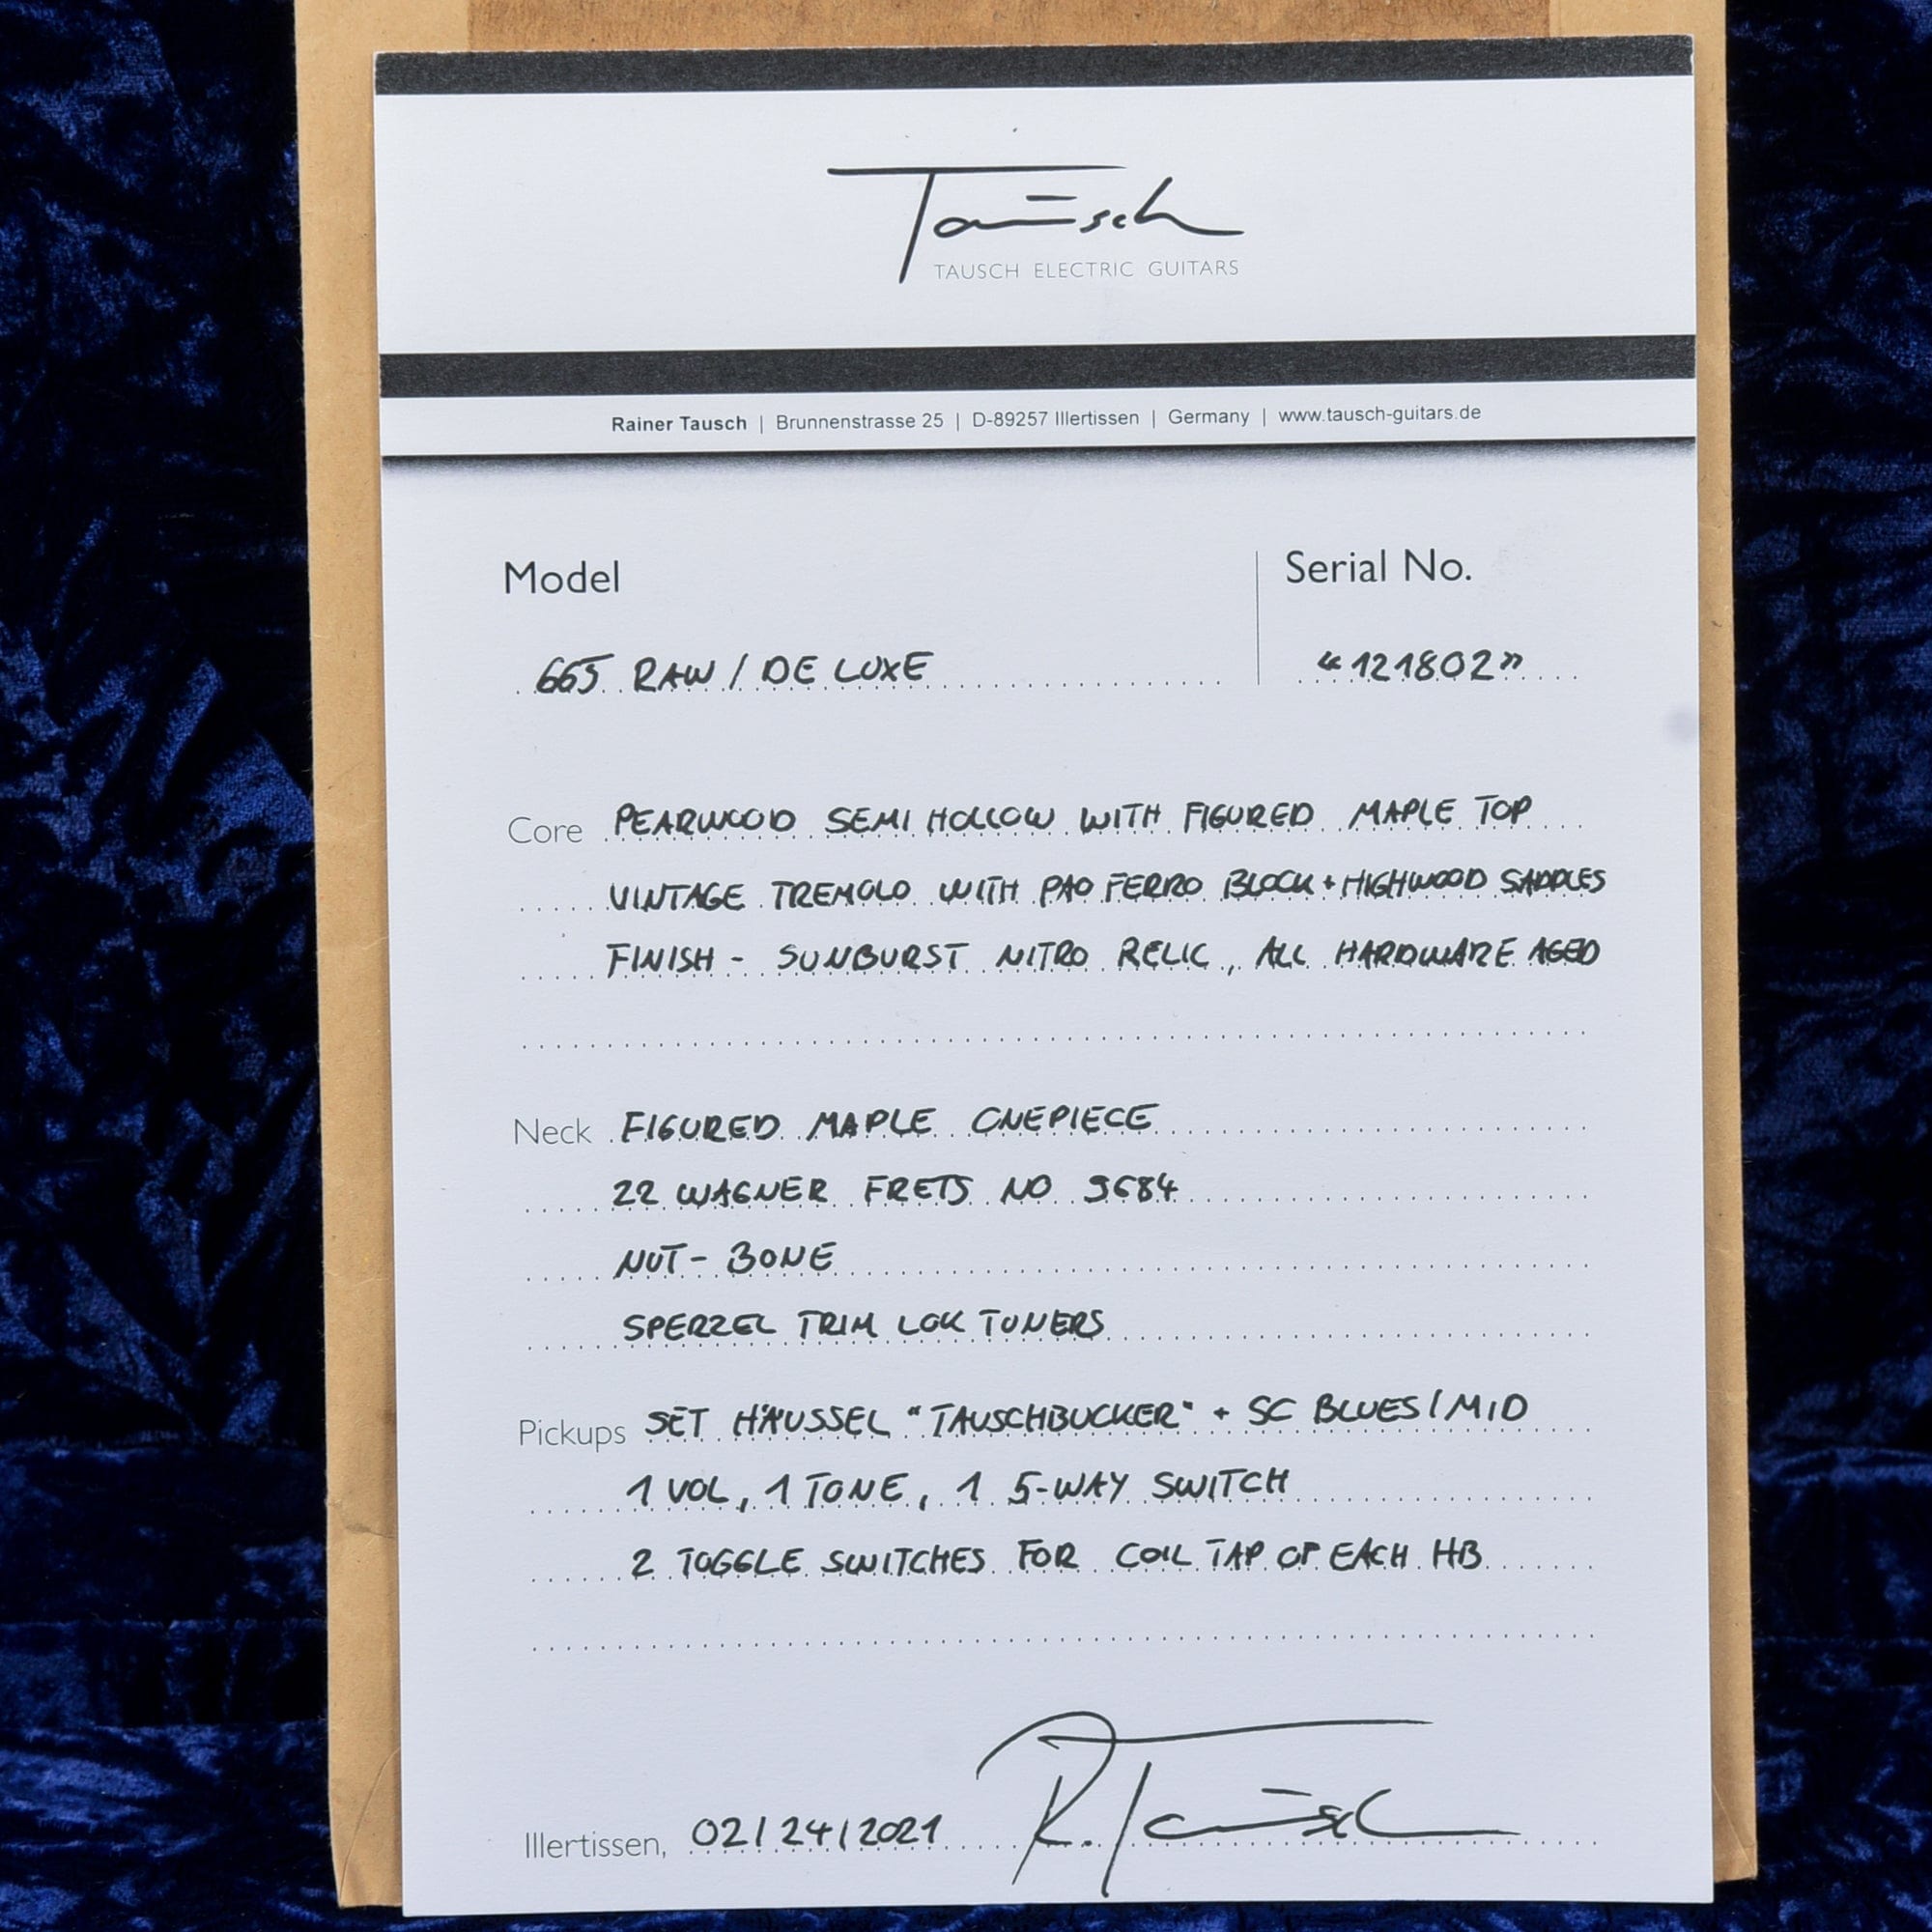 Tausch
TAUSCH ELECTRIC GUITARS
Rainer Tausch | Brunnenstrasse 25 | D-89257 Illertissen | Germany | www.tausch-guitars.de
Model
Serial No.
665 RAW / DE LUXE
"121802"
Core PEARWOOD SEMI HOLLOW WITH FIGURED MAPLE TOP
VINTAGE TREMOLO WITH PAO FERRO BLOCK + HIGHWOOD SADDLES
FINISH - SUNBURST NITRO RELIC, ALL HARDWARE AGED
Neck FIGURED MAPLE ONEPIECE
22 WAGNER FRETS NO 9684
NUT - BONE
SPERZEL TRIM LOK TUNERS
Pickups SET HÄUSSEL "TAUSCHBUCKER" + SC BLUES/MID
1 VOL, 1 TONE, 1 5-WAY SWITCH
2 TOGGLE SWITCHES FOR COIL TAP OF EACH HB
Illertissen, 02/24/2021 R. Tausch